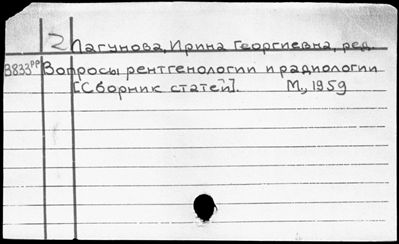 2 Лагунова, Ирина Георгиевна, ред.
В833рр Вопросы рентгенологии и радиологии
[Сборник статей]. М., 1959